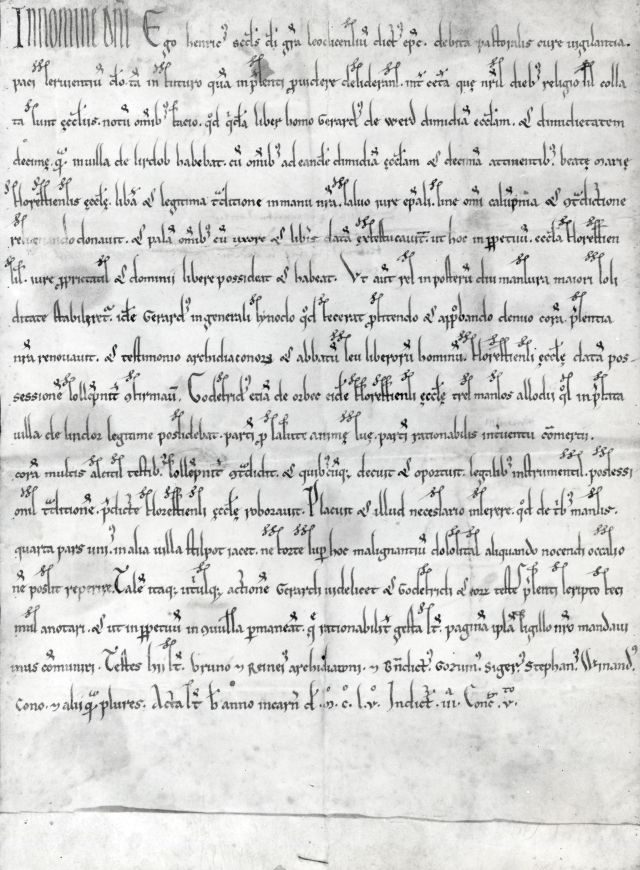 In nomine dn̄i Ego henricꝰ sc̄cs dī gr̄a leodicensiū dictꝰ ep̄c. debita pastoralis cure vigilantia.
paci servientiū dō. tā in futuro quā in p̄senti ꝓvidere desiderans. int̄ cet̄a que nr̄is diebꝰ religiosis colla
ta sunt eccl̄iis. notū om̄ibꝰ facio. qd̄ qidā liber homo Gerardꝰ de werd dimidiā eccl̄am. et dimidietatem
decime. qā in villa de lirdob habebat. cū om̄ibꝰ ad eandē dimidiā eccl̄am et decimā attinentibꝰ. beate marie
floreffiensis eccl̄e. libā et legitima tditione in manu nr̄a. salvo iure ep̄ali. sine om̄i calūpnia et 9tdictione
resignando donavit. et palā om̄ibꝰ cū uxore et libis datā exfestucavit. ut hoc in ꝑpetuū. eccl̄a floreffien
sis. iure ꝓprietatis et dominii libere possideat et habeat. Ut aut̄ res in posterū diu mansura maiori soli
ditate stabiliret̄. idē Gerardꝰ in generali synodo qd̄ fecerat ꝓfitendo et apꝓbando denuo corā p̄sentia
nr̄a renovavit. et testimonio archidiaconoꝝ et abbatū seu liberorū hominū. floreffiensi eccl̄e datā pos-
sessionē sollēpnit̄ 9firmavi. Godefridꝰ etiā de orbec eidē floreffiensi eccl̄e tres mansos allodii qs in p̄fata
villa de lindoz legitime possidebat. partī ꝓ salute anime sue. partī rationabilis intventu cōmertii.
corā multis ascitis testibꝰ sollēpnit̄ 9tdidit. et quibꝰcūq; decuit et oportuit. legalibꝰ instrumentis. possessi
onis tditionē. p̄dicte floreffiensi eccl̄e roboravit. Placuit et illud necessario inserere. qd̄ de tibꝰ mansis.
quarta pars uniꝰ. in alia villa stilpot iacet. ne forte sup hoc malignantiū dolositas aliquando nocendi occasio
nē possit reperire. Talē itaq; utiusq; actionē Gerardi videlicet et Godefridi et eoꝝ teste p̄senti scripto feci
mus anotari. et ut in ꝑpetuū in 9vulsa ꝑmaneāt. qe rationabilit̄ gesta st̄. paginā ipsā sigillo nr̄o mandavi
mus cōmuniri. Testes hii st̄. bruno et Reinerꝰ archidiaconi. et Bn̄dictꝰ Gozuinꝰ. Sigerꝰ. Stephanꝰ Winandꝰ.
Cono. et alii qā plures. Acta st̄ hͨ anno incarn̄ dō. M̊. C̊. L. V̊. Indict̄. iii. Conc̄. v.